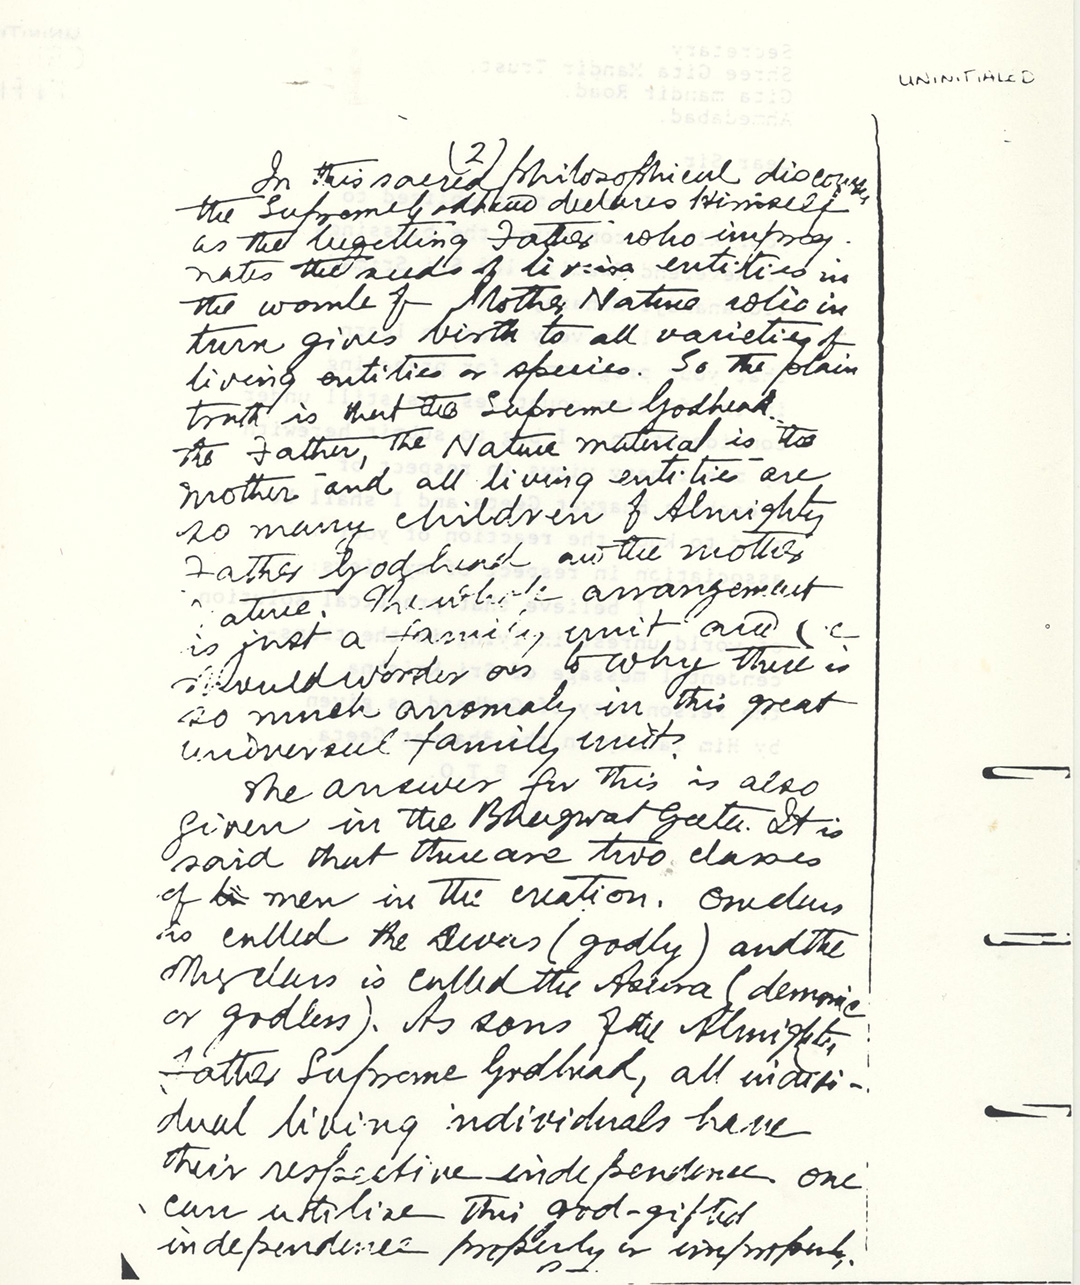 UNINITIALED
(2)
In this sacred philosophical discourses
the Supreme Godhead declares Himself
as the begetting Father who impreg-
nates the seeds of living entities in
the womb of Mother Nature who in
turn gives birth to all varieties of
living entities or species. So the plain
truth is that the Supreme Godhead
the Father, the Nature material is the
mother and all living entities are
so many children of Almighty
Father Godhead and the mother
nature. The whole arrangement
is just a family unit and
should wonder as to why there is
so much anomaly in this great
universal family unit.
The answer for this is also
given in the Bhagwat Geeta. It is
said that there are two classes
of men in the creation. One class
is called the Devas (godly) and the
other class is called the Asura (demonic
or godless). As sons of the Almighty
Father Supreme Godhead, all indivi-
dual living individuals have
their respective independence one
can utilize this god-gifted
independence properly or improperly.